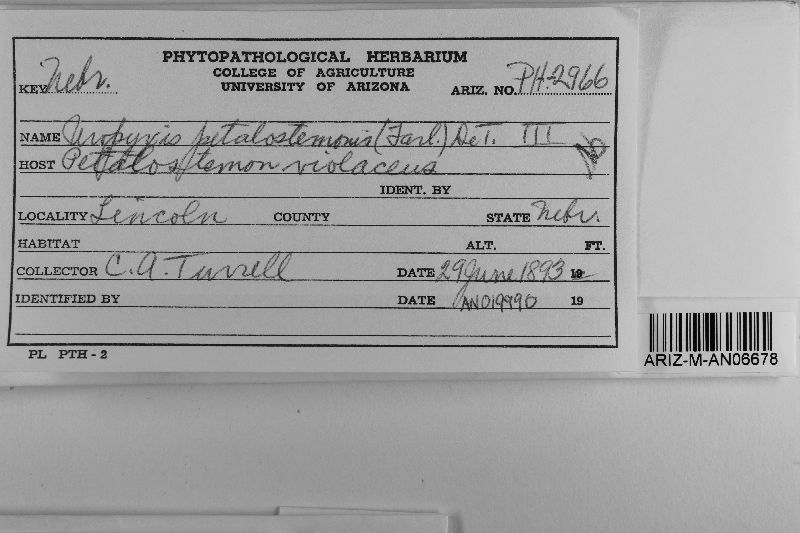 PHYTOPATHOLOGICAL HERBARIUM
COLLEGE OF AGRICULTURE
UNIVERSITY OF ARIZONA
KEY Nebr. ARIZ. NO. PH-2966
NAME Uropyxis petalostemonis (Farl.) DeT. III
HOST Petalostemon violaceus
IDENT. BY
LOCALITY Lincoln COUNTY STATE Nebr.
HABITAT ALT. FT.
COLLECTOR C. A. Turrell DATE 29 June 1893 19
IDENTIFIED BY DATE AN019990 19
PL PTH - 2
ARIZ-M-AN06678